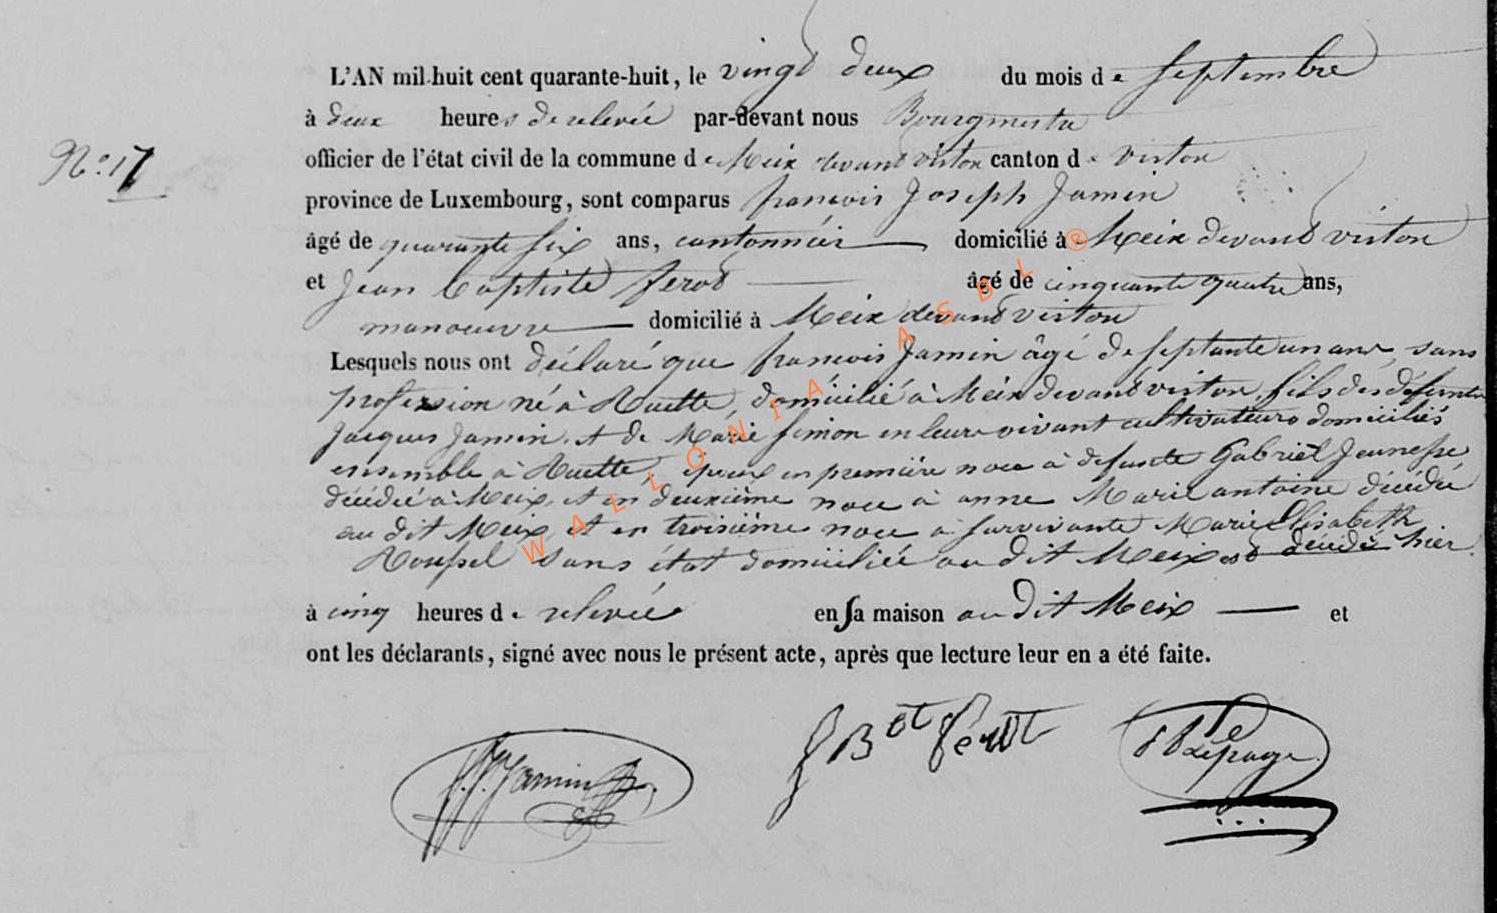 L'AN mil huit cent quarante-huit, le vingt deux du mois de Septembre
à deux heures de relevée par-devant nous Bourgmestre
N.° 17
officier de l'état civil de la commune de Meix devant virton canton de virton
province de Luxembourg, sont comparus françois Joseph Jamin
âgé de quarante six ans, cantonnier domicilié à Meix devant virton
et Jean Baptiste ferot âgé de cinquante quatre ans,
manoeuvre domicilié à Meix devant virton
Lesquels nous ont déclaré que françois Jamin âgé de septante un ans, sans
profession né à Ruette, domicilié à Meix devant virton, fils des défunts
Jacques Jamin et de Marie Simon en leurs vivant cultivateurs domiciliés
ensemble à Ruette, époux en première noce à défunte Gabriel Jeunesse
décédée à Meix, et en deuxième noce à anne Marie antoine décédée
au dit Meix, et en troisième noce à survivante Marie Elisabeth
sans état domiciliée au dit Meix est décédé hier
à cinq heures de relevée en sa maison au dit Meix et
ont les déclarants, signé avec nous le présent acte, après que lecture leur en a été faite.
f.J. Jamin
J Bte férot
Lepage
WALLONIA ASBL ®